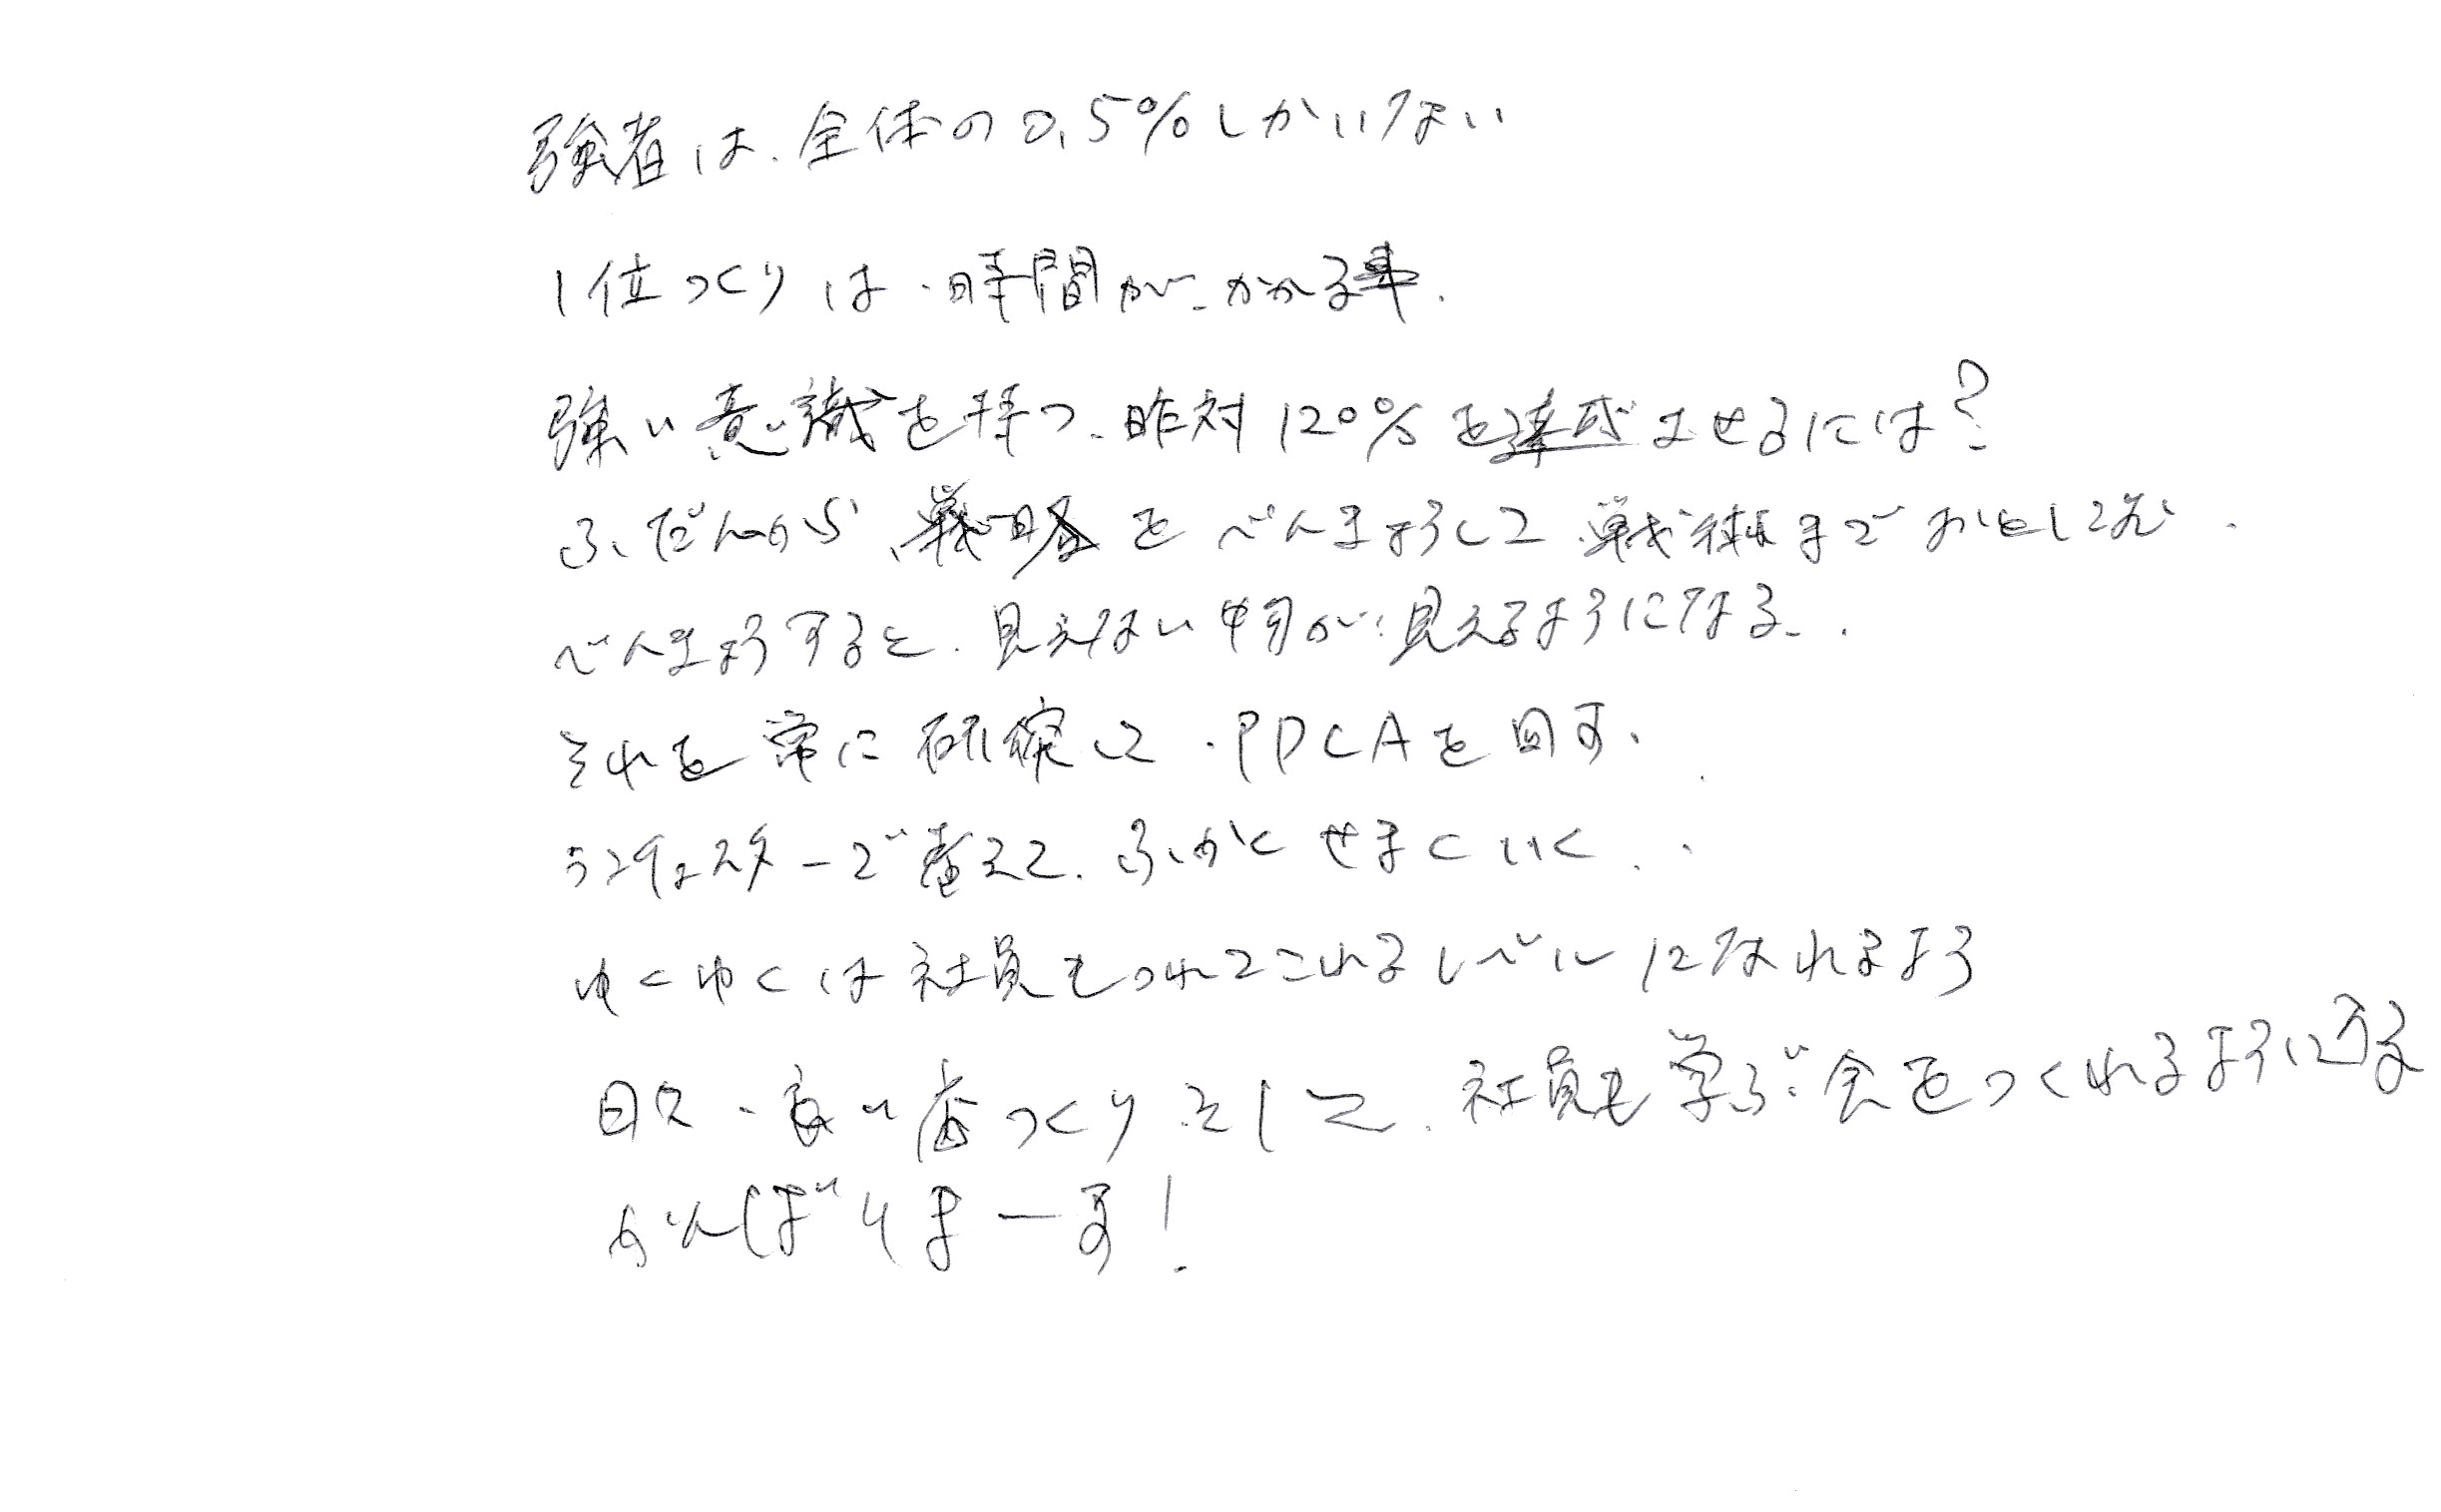 強者は、全体の0.5%しかいない
1位づくりは、時間が、かかる事.
強い意識を持つ、昨対120%を達成させるには?
ふだんから、戦略をべんきょうして戦術までおとし込む.
べんきょうすると、見えない物が、見えるようになる.
それを常に研究して、PDCAを回す、
ランチェスターで考えて、ふかくせまくいく..
ゆくゆくは社員もつれてこれるレベルになれるよう
日々、良い店つくりそして、社員も学ぶ会をつくれるようにする
がんばりまーす!